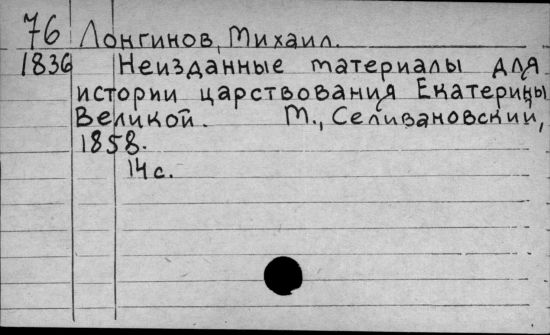 76 Лонгинов, Михаил.
1836 Неизданные материалы для
истории царствования Екатерины
Великой. М., Селивановский,
1858.
14 с.